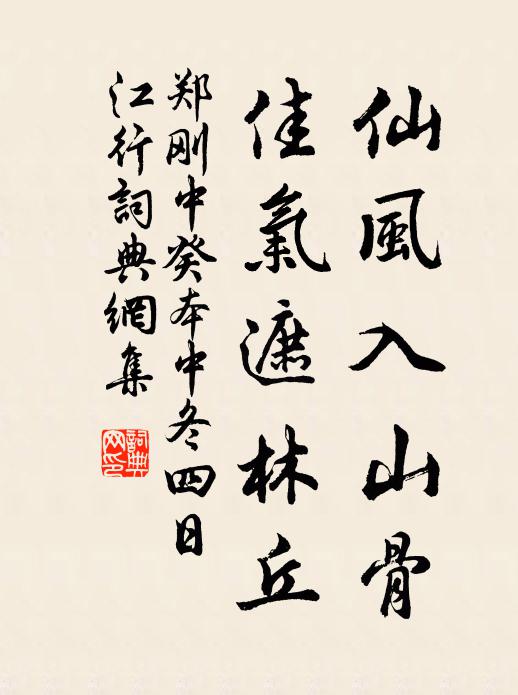 仙風入山骨
佳氣遮林丘
郑刚中癸本中冬四日
江行詞典網集
詞典網印